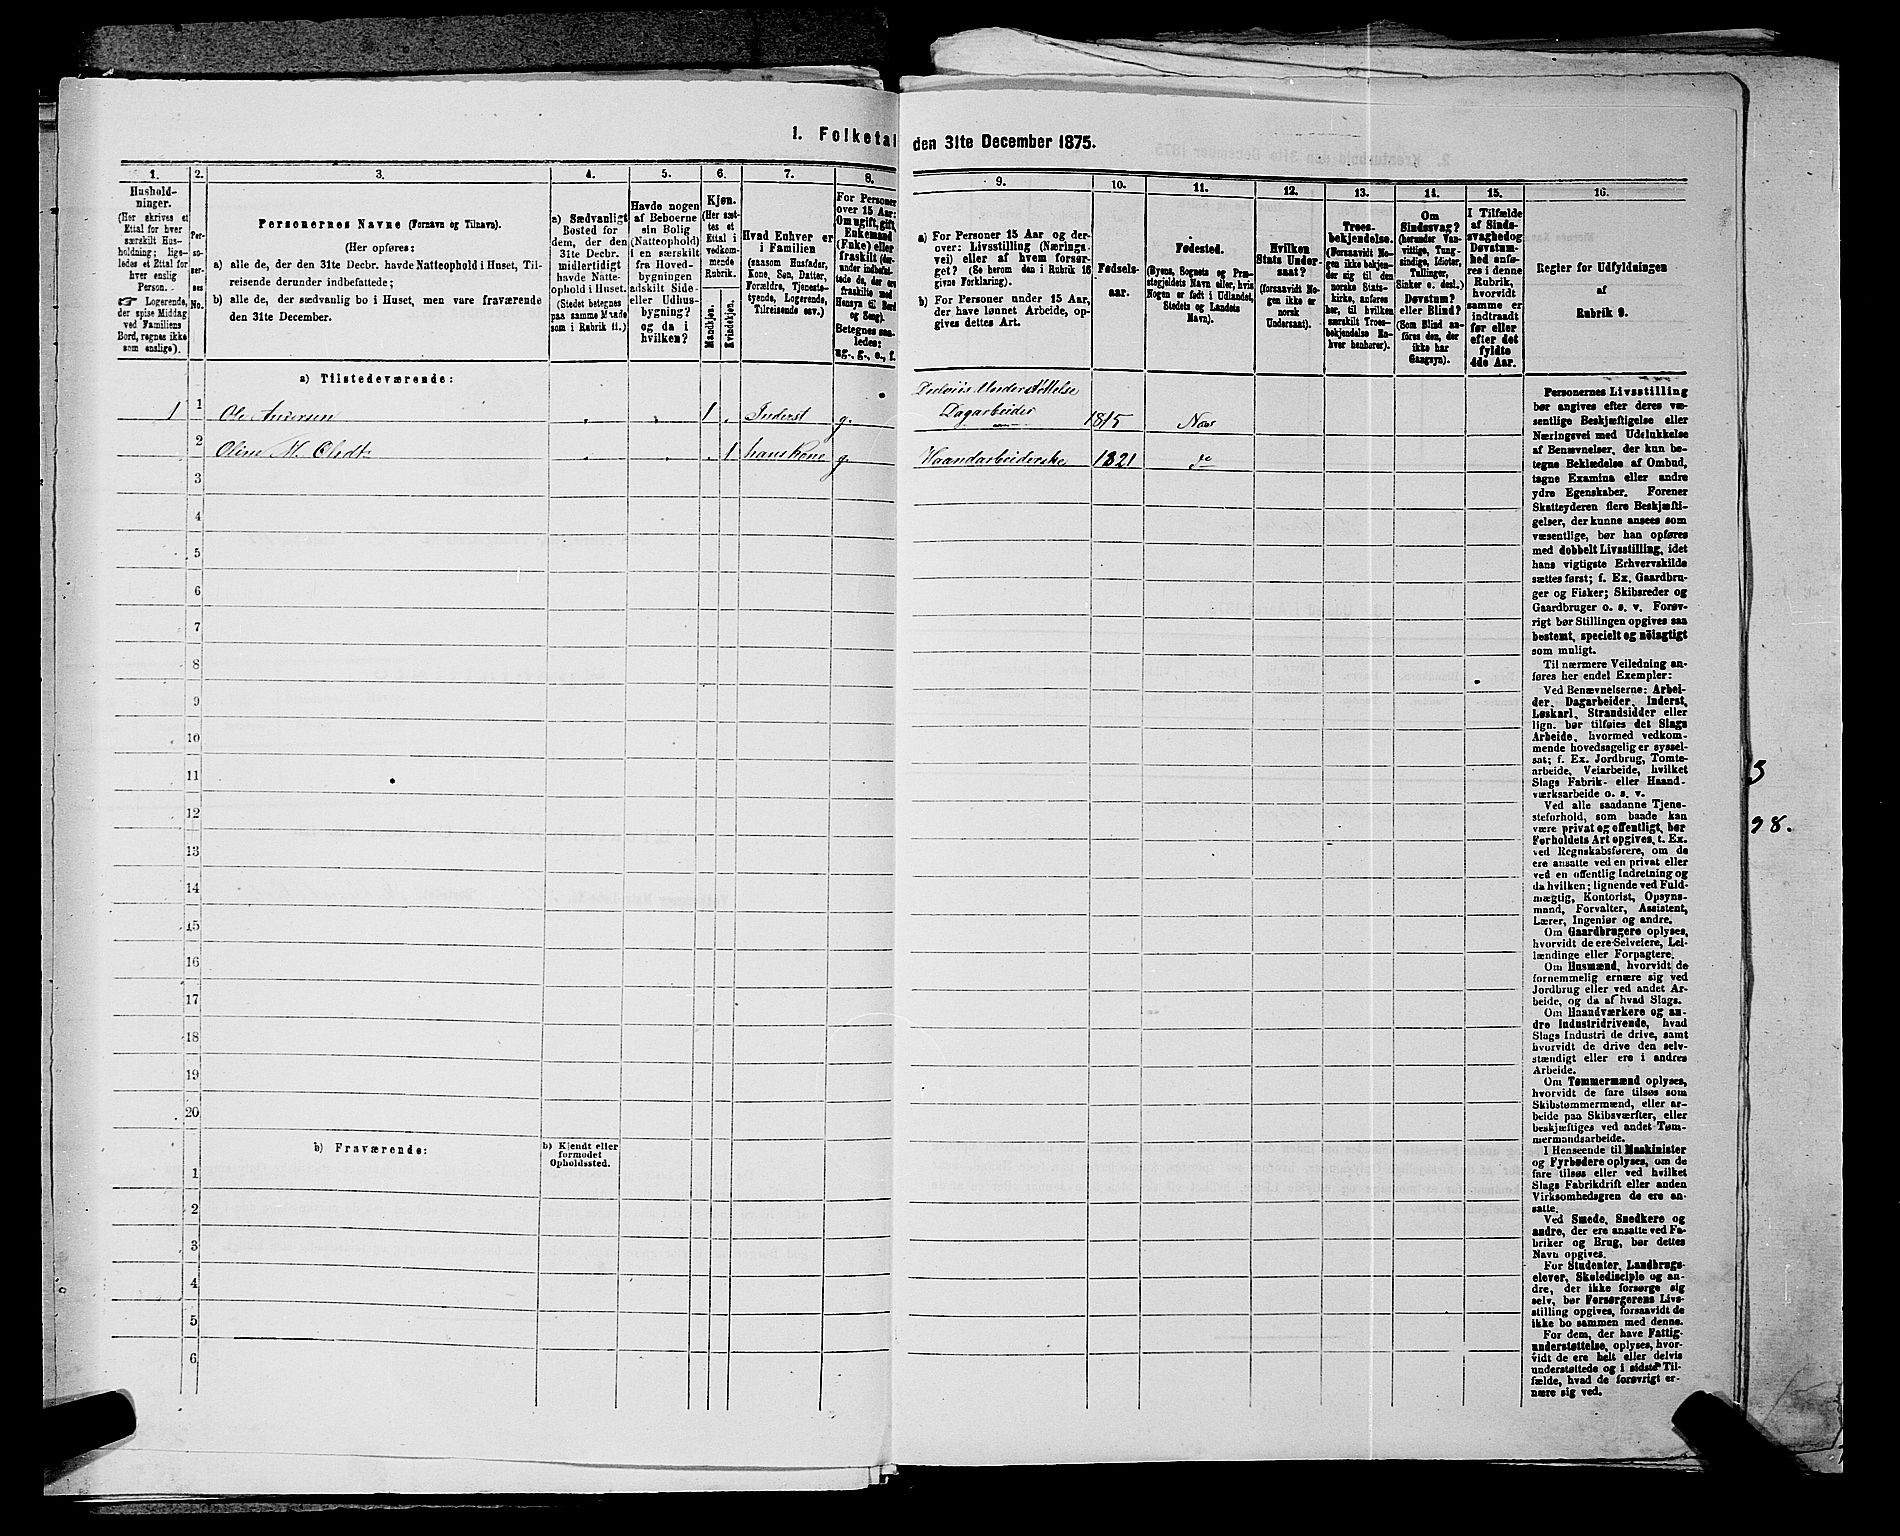 1. Folketal den 31te December 1875.
1.
2.
3.
4.
5.
6.
7.
8.
9.
10.
11.
12.
13.
14.
15.
16.
Hushold-
ninger.
(Her skrives et
Ettal for hver
særskilt Hus-
holdning; lige-
ledes et Ettal for
hver enslig
Person.
☞ Logerende,
der spise Middag
ved Familiens
Bord, regnes ikke
som enslige).
Per-
so-
ner-
nes
No.
Personernes Navne (Fornavn og Tilnavn).
(Her opføres:
a) alle de, der den 31te Decbr. havde Natteophold i Huset, Til-
reisende derunder indbefattede;
b) alle de, der sædvanlig bo i Huset, men vare fraværende
den 31te December.
a) Sædvanligt
Bosted for
dem, der den
31te Decbr.
midlertidigt
havde Natte-
ophold i Huset.
(Stedet betegnes
paa samme Maade
som i Rubrik 11.)
Havde nogen
af Beboerne
sin Bolig
(Natteophold)
i en særskilt
fra Hoved-
bygningen
adskilt Side-
eller Udhus-
bygning?
og da i
hvilken?
Kjøn.
(Her sæt-
tes et
Ettal i
vedkom-
mende
Rubrik.
Mandkjøn.
Kvindekjøn.
Hvad Enhver er
i Familien
(saasom Husfader,
Kone, Søn, Datter,
Forældre, Tjeneste-
tyende, Logerende,
Tilreisende osv.)
For Personer
over 15 Aar:
Om ugift, gift,
Enkemand
(Enke) eller
fraskilt (der-
under indbefat-
tede de, der ere
fraskilte med
Hensyn til Bord
og Seng).
Betegnes saa-
ledes:
ug., g., e., f.
a) For Personer 15 Aar og der-
over: Livsstilling (Nærings-
vei) eller af hvem forsør-
get? (Se herom den i Rubrik 16
givne Forklaring).
b) For Personer under 15 Aar,
der have lønnet Arbeide, op-
gives dettes Art.
Fødsels-
aar.
Fødested.
(Byens, Sognets og Præ-
stegjeldets Navn eller, hvis
Nogen er født i Udlandet,
Stedets og Landets
Navn).
Hvilken
Stats Under-
saat?
(forsaavidt No-
gen ikke er
norsk
Undersaat).
Troes-
bekjendelse.
(Forsaavidt No-
gen ikke bekjen-
der sig til den
norske Stats-
kirke, anføres
her, til hvilken
særskilt Troes-
bekjendelse En-
hver henhører).
Om
Sindssvag?
(herunder Van-
vittige, Tung-
sindige, Idioter,
Tullinger,
Sinker o. desl.)
Døvstum?
eller Blind?
(Som Blind an-
føres den, der
ikke har
Gangsyn).
I Tilfælde
af Sinds-
svaghed og
Døvstum-
hed anfø-
res i denne
Rubrik,
hvorvidt
samme er
indtraadt
før eller
efter det
fyldte
4de Aar.
Regler for Udfyldningen
af
Rubrik 9.
a) Tilstedeværende:
1 1 Ole Andersen 1 Inderst g. Understøttelse
Dagarbeider 1815 Næs
2 Oline M. 1 hans Kone g. Haandarbeiderske 1821 do
3
4
5
6
7
8
9
10
11
12
13
14
15
16
17
18
19
20
b) Fraværende:
b) Kjendt eller
formodet
Opholdssted.
1
2
3
4
5
6
Personernes Livsstilling
bør angives efter deres væ-
sentlige Beskjæftigelse eller
Næringsvei med Udelukkelse
af Benævnelser, der kun be-
tegne Beklædelse af Ombud,
tagne Examina eller andre
ydre Egenskaber. Forener
Skatteyderen flere Beskjæfti-
gelser, der kunne ansees som
væsentlige, bør han opføres
med dobbelt Livsstilling, idet
hans vigtigste Erhvervskilde
sættes først; f. Ex. Gaardbru-
ger og Fisker; Skibsreder og
Gaardbruger o. s. v. Forøv-
rigt bør Stillingen opgives saa
bestemt, specielt og nöiagtigt
som muligt.
Til nærmere Veiledning an-
føres her endel Exempler:
Ved Benævnelserne: Arbei-
der, Dagarbeider, Inderst,
Løskarl, Strandsidder eller
lign. bør tilføies det Slags
Arbeide, hvormed vedkom-
mende hovedsagelig er syssel-
sat; f. Ex. Jordbrug, Tomte-
arbeide, Veiarbeide, hvilket
Slags Fabrik- eller Haand-
værksarbeide o. s. v.
Ved alle saadanne Tjene-
steforhold, som baade kan
være privat og offentligt, bør
Forholdets Art opgives, t. Ex.
ved Regnskabsførere, om de
ere ansatte ved en privat eller
ved en offentlig Indretning og
da hvilken; lignende ved Fuld-
mægtig, Kontorist, Opsyns-
mand, Forvalter, Assistent,
Lærer, Ingeniør og andre.
Om Gaardbrugere oplyses,
hvorvidt de ere Selveiere, Lei-
lændinge eller Forpagtere.
Om Husmænd, hvorvidt de
fornemmelig ernære sig ved
Jordbrug eller ved andet Ar-
beide, og da af hvad Slags.
Om Haandværkere og an-
dre Industridrivende, hvad
Slags Industri de drive, samt
hvorvidt de drive den selv-
stændigt eller ere i andres
Arbeide.
Om Tømmermænd oplyses,
hvorvidt de fare tilsøs som
Skibstømmermænd, eller ar-
beide paa Skibsværfter, eller
beskjæftiges ved andet Tøm-
mermandsarbeide.
I Henseende til Maskinister
og Fyrbødere oplyses, om de
fare tilsøs eller ved hvilket
Slags Fabrikdrift eller anden
Virksomhedsgren de ere an-
satte.
Ved Smede, Snedkere og
andre, der ere ansatte ved Fa-
briker og Brug, bør dettes
Navn opgives.
For Studenter, Landbrugs-
elever, Skoledisciple og an-
dre, der ikke forsørge sig
selv, bør Forsørgerens Livs-
stilling opgives, forsaavidt de
ikke bo sammen med denne.
For dem, der have Fattig-
understøttelse, oplyses, hvor-
vidt de ere helt eller delvis
understøttede og i sidste Til-
fælde, hvad de forøvrigt er-
nære sig ved.